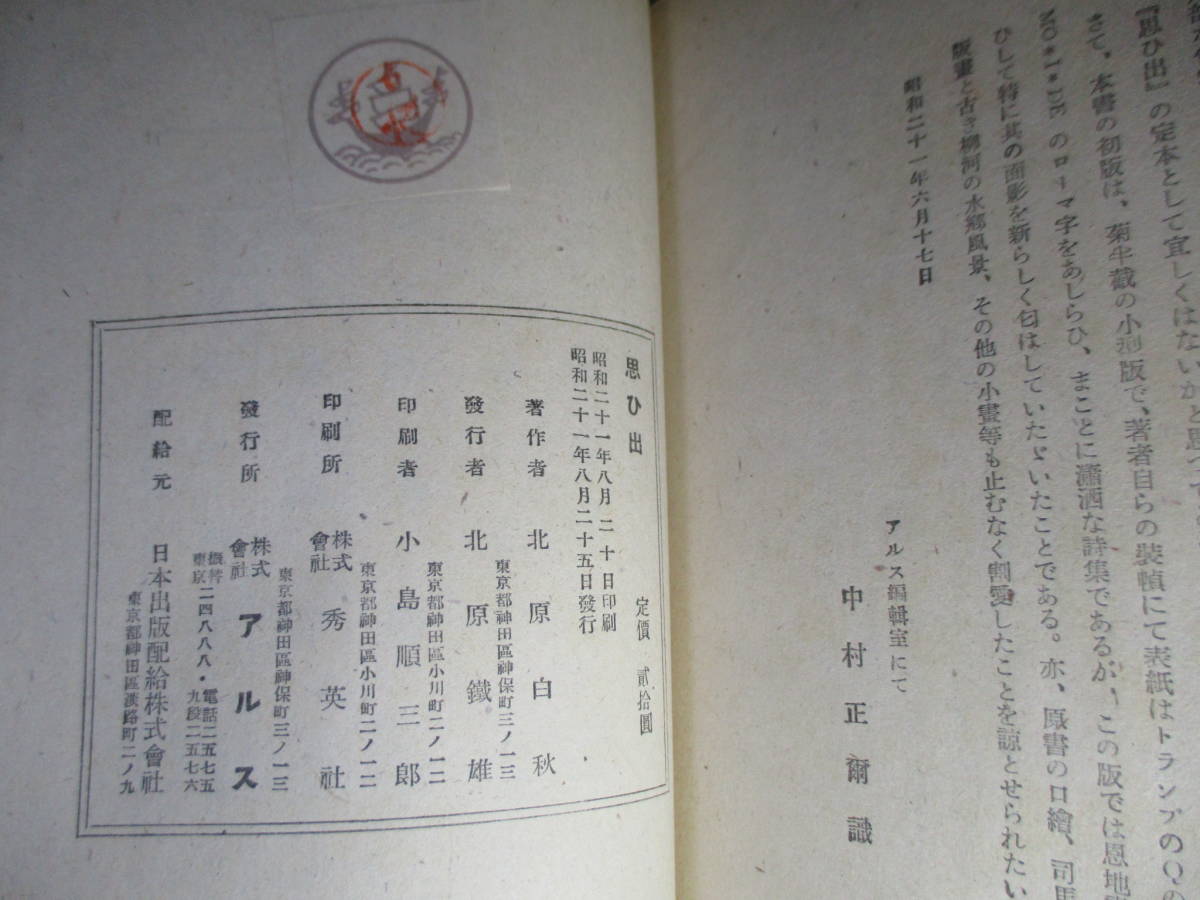 『思ひ出』の定本として宜しくはないかと思つて
さて、本書の初版は、菊半截の小型版で、著者自らの装幀にて表紙はトランプのQの
MO*I*DE のローマ字をあしらひ、まことに瀟洒な詩集であるが、この版では恩地
ひして特に其の面影を新らしく匂はしていたゞいたことである。亦、原書の口繪、司馬
版畫と古き柳河の水郷風景、その他の小畫等も止むなく割愛したことを諒とせられたい
昭和二十一年六月十七日
アルス編輯室にて
中村正爾識
思ひ出
定價 貳拾圓
昭和二十一年八月二十日印刷
昭和二十一年八月二十五日發行
著作者 北原白秋
東京都神田區神保町三ノ一三
發行者 北原鐵雄
東京都神田區小川町二ノ一二
印刷者 小島順三郎
東京都神田區小川町二ノ一二
印刷所 株式會社 秀英社
東京都神田區神保町三ノ一三
發行所 株式會社 アルス
振替東京二四八八八・電話九段二五七五 二五七六
配給元 日本出版配給株式會社
東京都神田區淡路町二ノ九